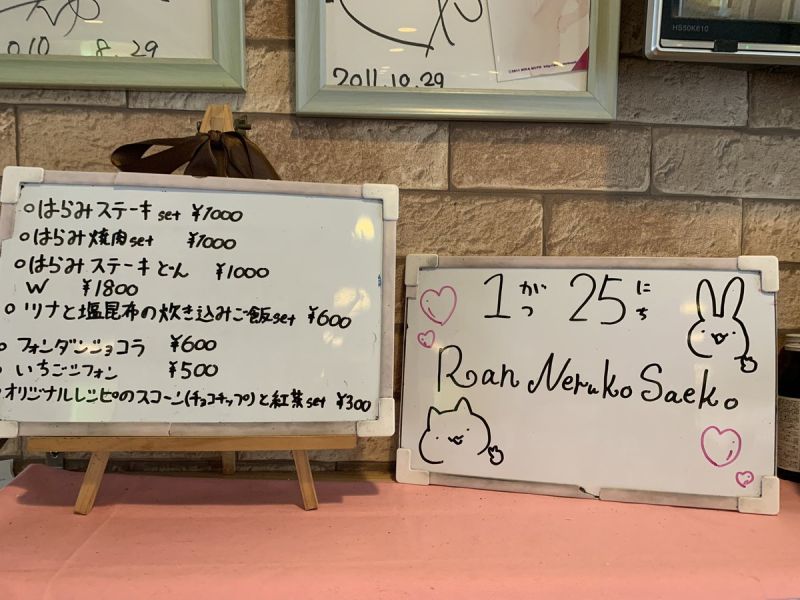 010 8.29
2011.10.29
HS50K610
○はらみステーキset ¥1000
○はらみ焼肉set ¥1000
○はらみステーキどん ¥1000
W ¥1800
○ツナと塩昆布の炊き込みご飯set ¥600
○フォンダンショコラ ¥600
○いちごシフォン ¥500
○オリジナルレシピのスコーン(チョコチップ)と紅茶set ¥300
1がつ 25にち
Ran Neruko Saeko。